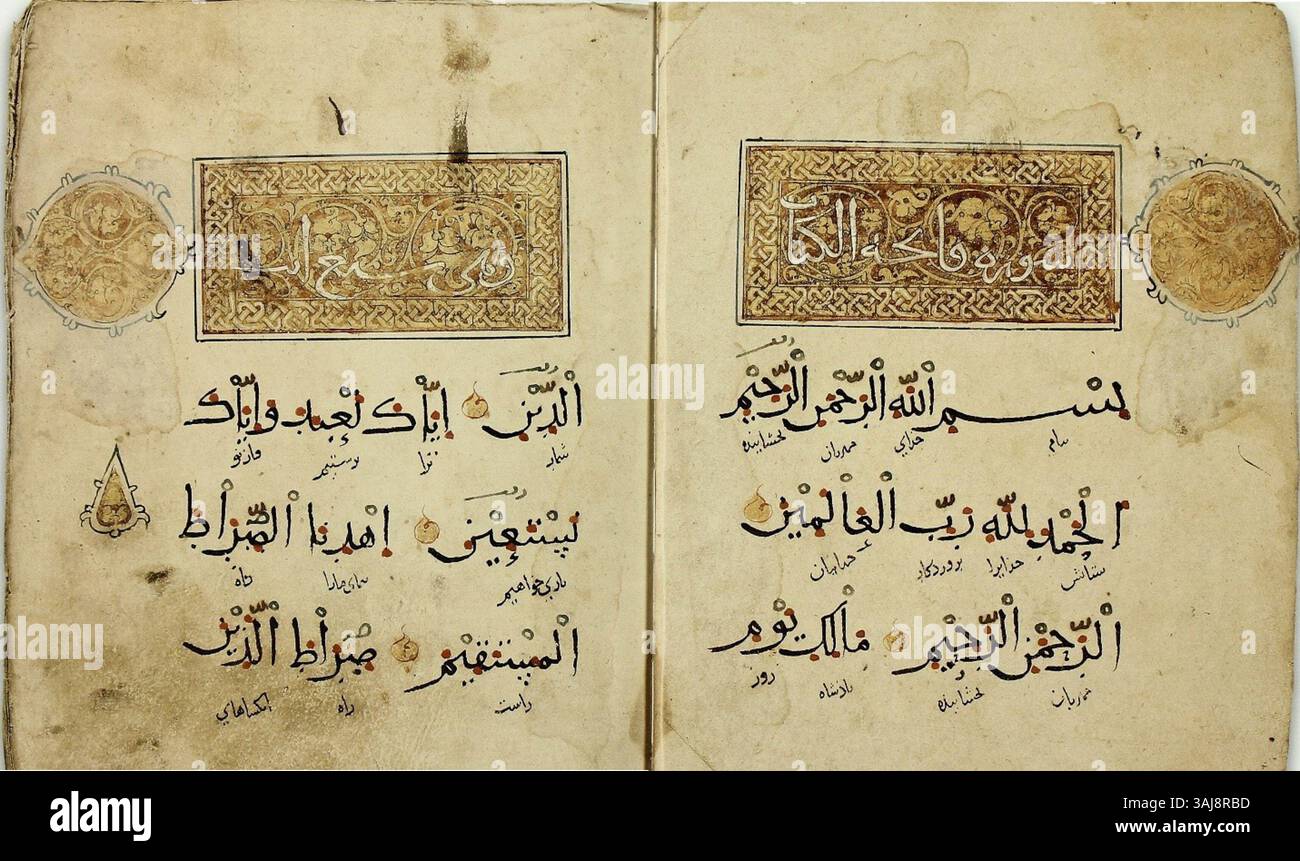 سورة فاتحة الكتاب
بِسْمِ اللَّهِ الرَّحْمٰنِ الرَّحِيمِ
بنام خدای مهربان بخشاینده
اَلْحَمْدُ لِلَّهِ رَبِّ الْعَالَمِينَ
ستایش خدایرا پروردکار
الرَّحْمٰنِ الرَّحِيمِ مَالِكِ يَوْمِ
مهربان بخشاینده پادشاه روز
وهي سبع ايات
الدِّينِ اِيَّاكَ نَعْبُدُ وَاِيَّاكَ
شمار ترا پرستیم وازتو
نَسْتَعِينُ اِهْدِنَا الصِّرَاطَ
یاری خواهیم مارا راه
الْمُسْتَقِيمَ صِرَاطَ الَّذِينَ
راست راه انکساهای
alamy
Image ID: 3AJ8RBD
www.alamy.com